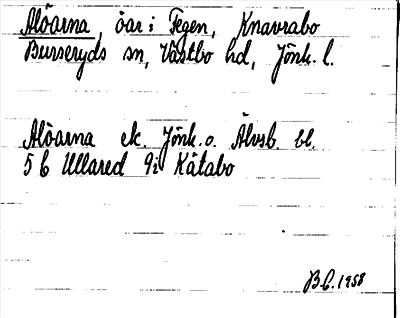 Alöarna, öar i Fegen, Knavrabo
Burseryds sn, Västbo hd, Jönk. l.
Alöarna ek. Jönk. o. Älvsb. bl.
5 C Ullared 9i Kåtabo
B.C. 1958